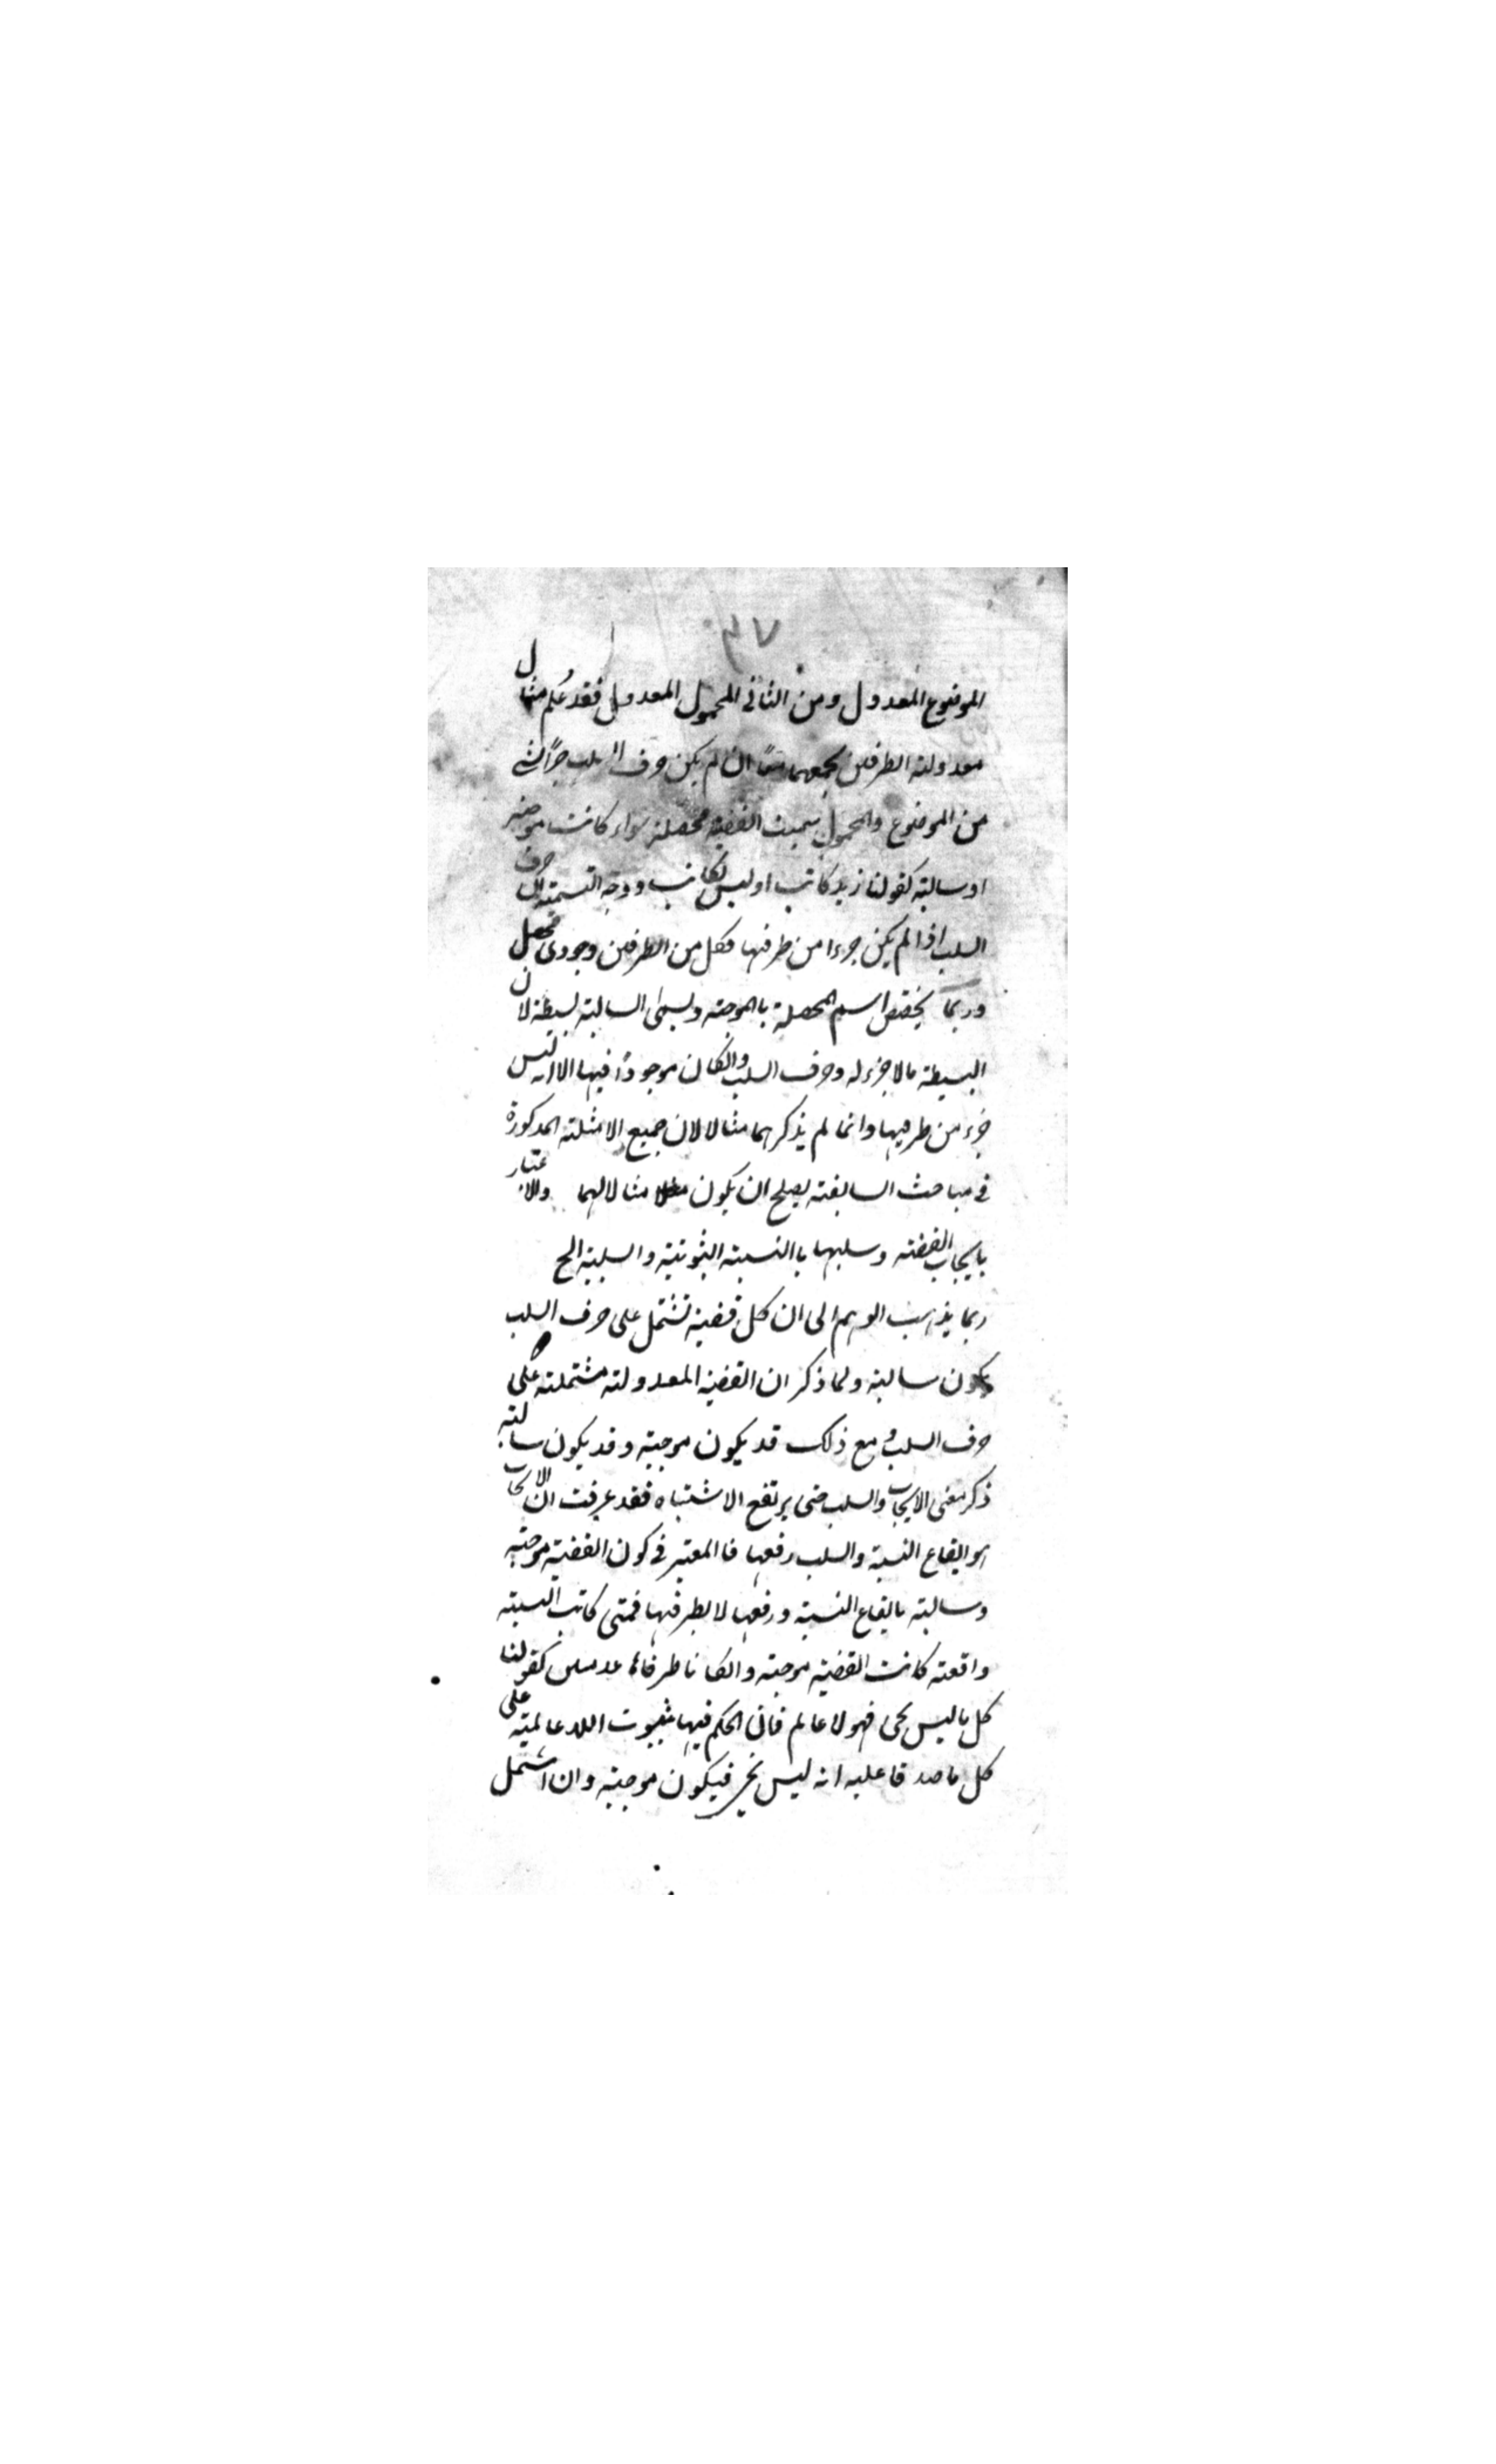 ٣٧
الموضوع المعدول ومن الثانى المحمول المعدول فقد علم مثال
معدولته الطرفين بجمعهما معًا ان لم يكن حرف السلب جزأ لشئ
من الموضوع والمحمول سميت القضية محصلة سواء كانت موجبة
اوسالبته كقولنا زيد كاتب اوليس بكاتب ووجه التسمته ان حرف
السلب اذا لم يكن جزءا من طرفيها فكل من الطرفين وجودى محصل
وربما يختص اسم المحصلة بالموجته ويسمى السالبته بسيطة لان
البسيطه مالا جزء له وحرف السلب وانكان موجودًا فيها الا انه ليس
جزء من طرفيها وانما لم يذكر لهما مثالا لان جميع الامثلته المذكورة
فى مباحث السابقته يصلح ان يكون مثالا لهما والاعتبار
بايجاب القضيته وسلبها باالنسبته الثبوتية والسلبية الخ
ربما يذهب الوهم الى ان كل قضية تشتمل على حرف السلب
يكون سالبته ولما ذكر ان القضية المعدولته مشتملته على
حرف السلب و مع ذلك قد يكون موجبته وقد يكون سالبته
ذكر معنى الايجاب والسلب حتى يرتفع الاشتباه فقد عرفت ان الايجاب
هو ايقاع النسبة والسلب رفعها فا المعتبر فى كون القضية موجبته
وسالبته بايقاع النسبة ورفعها لا بطرفيها فمتى كانت النسبته
واقعته كانت القضية موجبته وانكانا طرفاها عدميين كقولنا
كل ما ليس بحى فهو لا عالم فان الحكم فيها بثبوت اللا عالميته على
كل ما صدقا عليه انه ليس بحى فيكون موجبته وان اشتمل